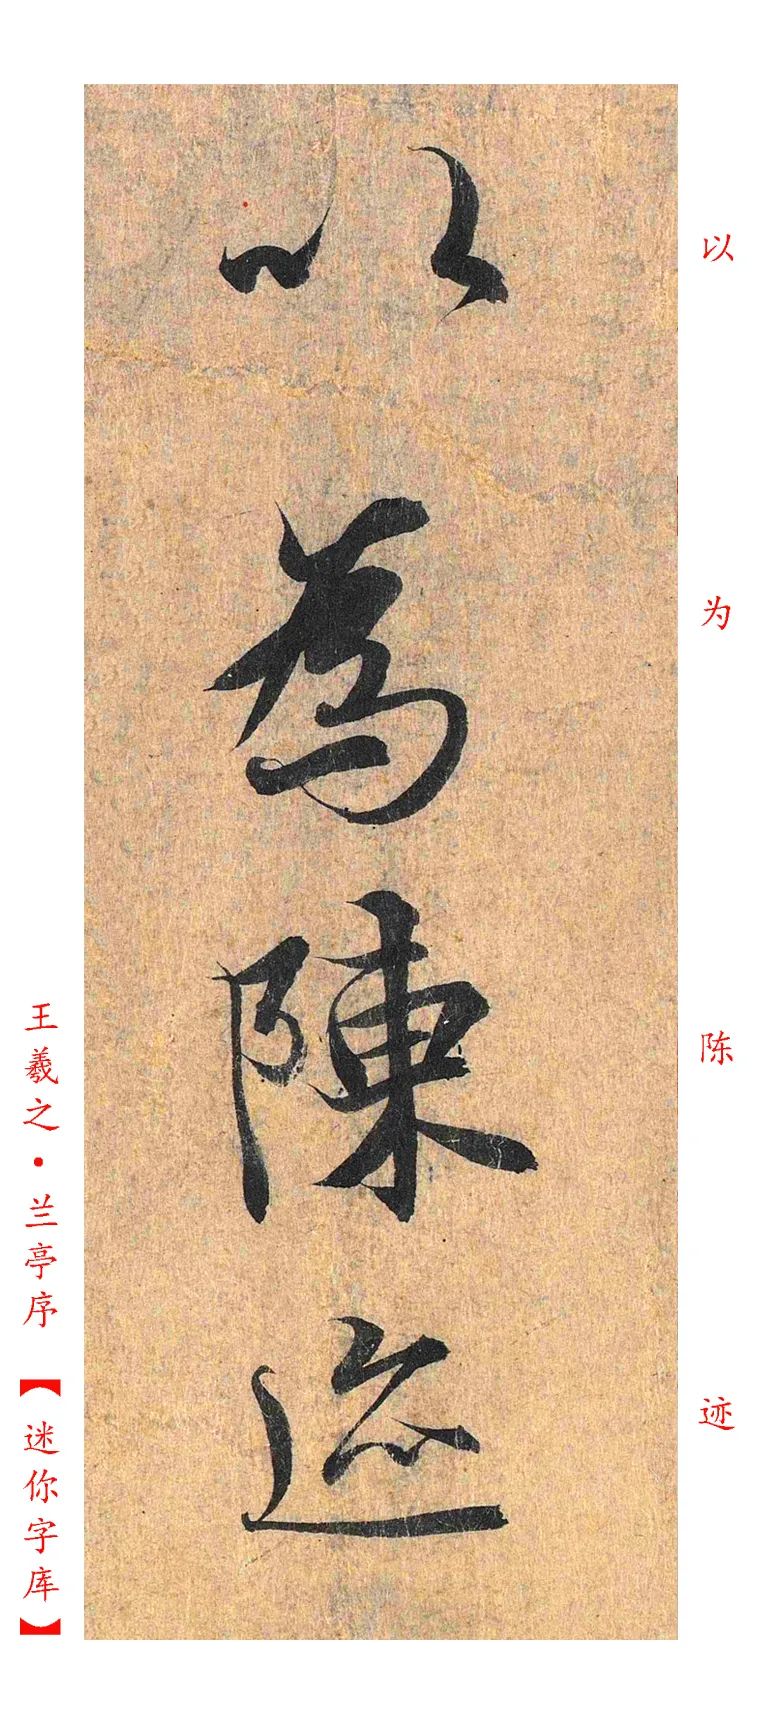 以為陳迹
以为陈迹
王羲之·兰亭序【迷你字库】